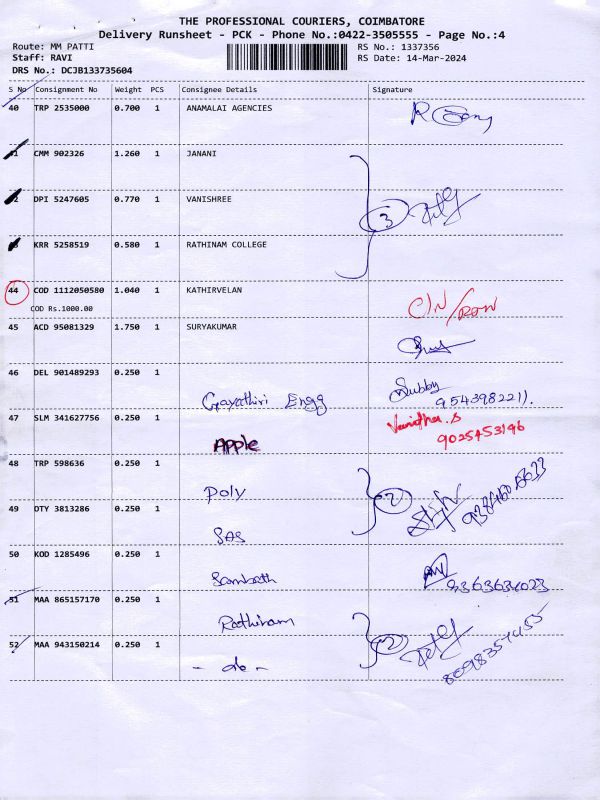 THE PROFESSIONAL COURIERS, COIMBATORE
Delivery Runsheet - PCK - Phone No.:0422-3505555 - Page No.:4
Route: MM PATTI
RS No.: 1337356
Staff: RAVI
RS Date: 14-Mar-2024
DRS No.: DCJB133735604
S No Consignment No Weight PCS Consignee Details Signature
40 TRP 2535000 0.700 1 ANAMALAI AGENCIES
41 CMM 902326 1.260 1 JANANI
42 DPI 5247605 0.770 1 VANISHREE
3
43 KRR 5258519 0.580 1 RATHINAM COLLEGE
44 COD 1112050580 1.040 1 KATHIRVELAN
COD Rs.1000.00
45 ACD 95081329 1.750 1 SURYAKUMAR
46 DEL 901489293 0.250 1
Gayathiri Engg
Subby
47 SLM 341627756 0.250 1
Apple
9025453146
48 TRP 598636 0.250 1
Poly
2
49 DTY 3813286 0.250 1
SAS
50 KOD 1285496 0.250 1
Sambath
9363634023
51 MAA 865157170 0.250 1
Rathinam
2
52 MAA 943150214 0.250 1
- do -